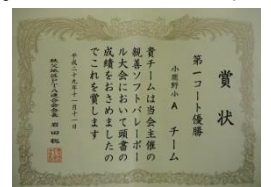 賞状
第一コート優勝
小鹿野小 A チーム
貴チームは当会主催の
親善ソフトバレーボー
ル大会において頭書の
成績をおさめましたの
でこれを賞します
平成二十九年十一月十一日
秩父地区PTA連合会会長